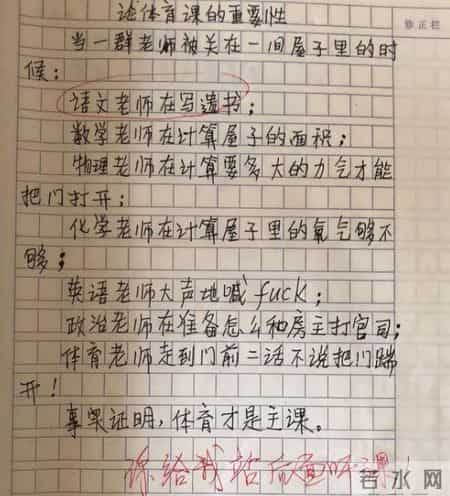 论体育课的重要性
修正栏
当一群老师被关在一间屋子里的时
候：
语文老师在写遗书；
数学老师在计算屋子的面积；
物理老师在计算要多大的力气才能
把门打开；
化学老师在计算屋子里的氧气够不
够；
英语老师大声地喊fuck；
政治老师在准备怎么和房主打官司；
体育老师走到门前二话不说把门踹
开！
事实证明，体育才是主课。
你给我站后面听课！
若水网